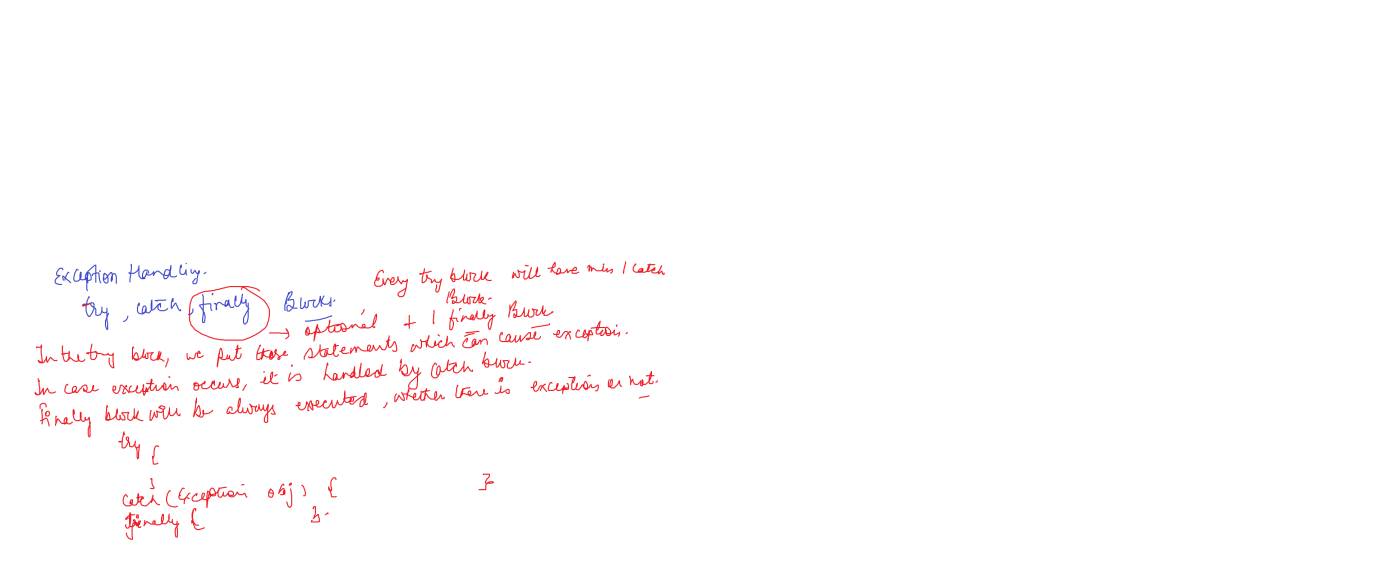 Exception Handling.
try, catch, finally Blocks.
Every try block will have min 1 catch
Block.
→ optional + 1 finally Block
In the try block, we put those statements which can cause exception.
In case exception occurs, it is handled by catch block.
finally block will be always executed, whether there is exception or not.
try {
}
catch (Exception obj) { }
finally { }.